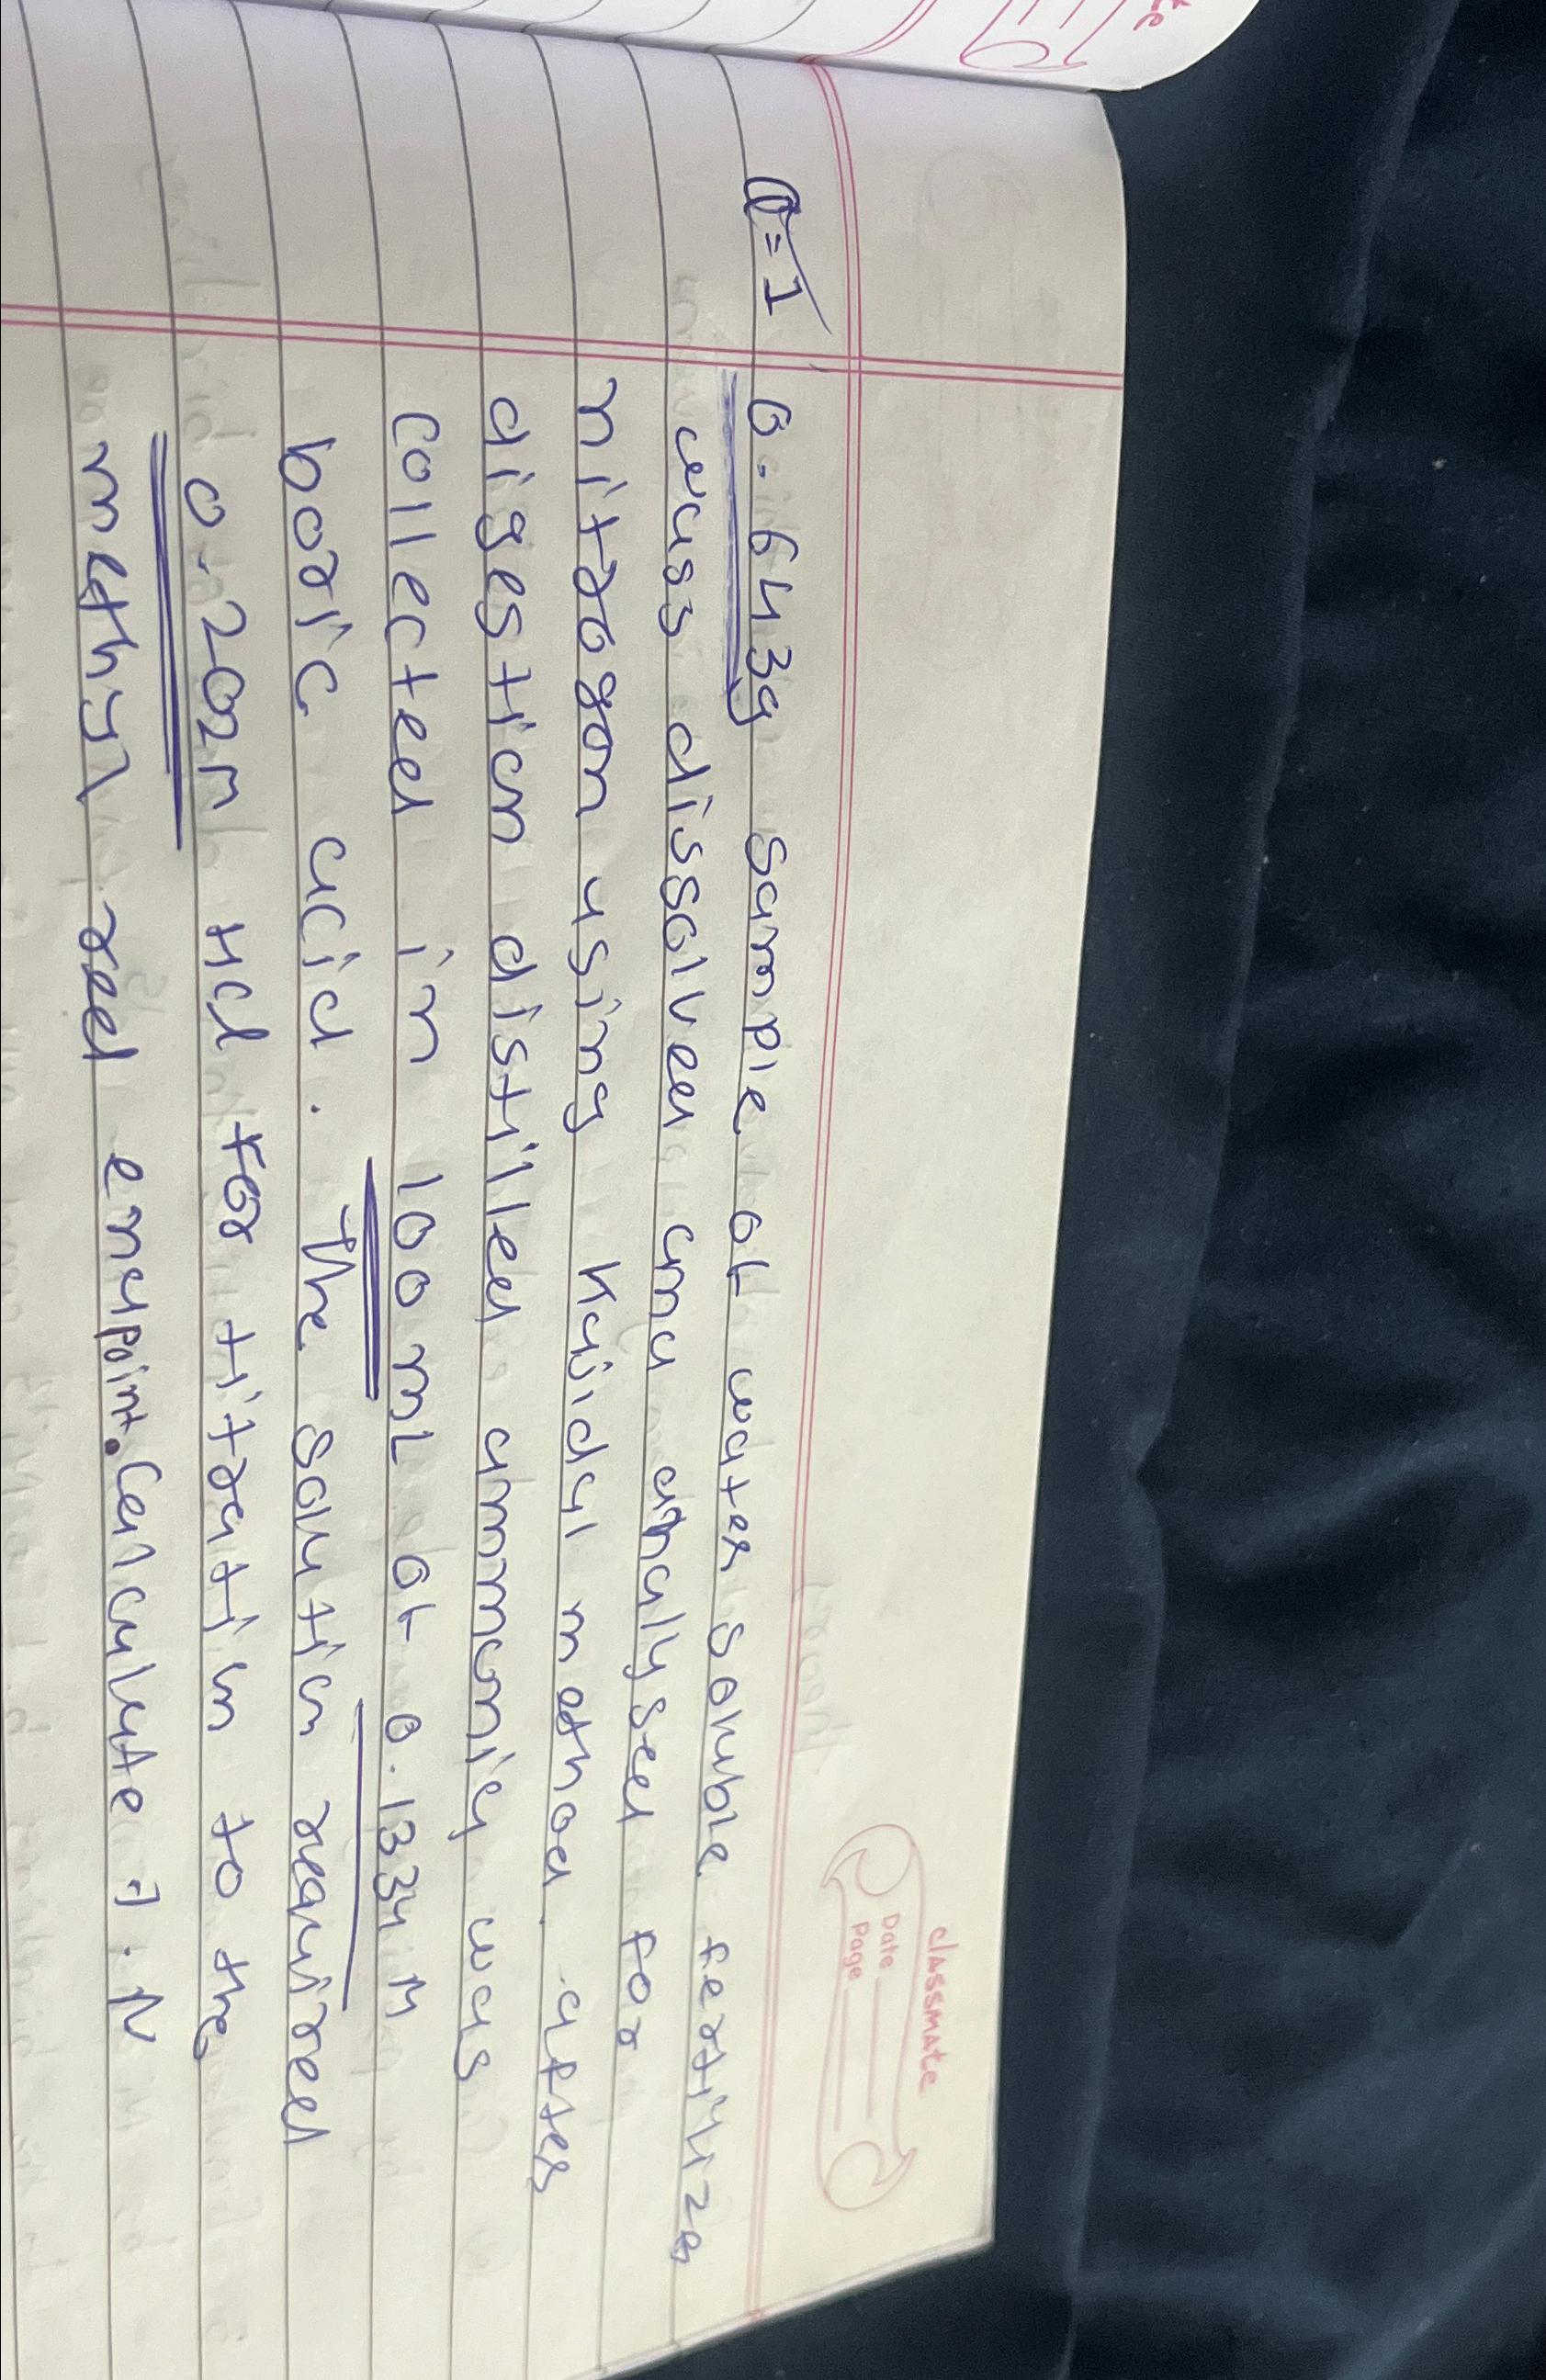 classmate
Date
Page
Q=1 0.643g sample of water soluble fertilizer
was dissolved and analysed for
nitrogon using Kajidal method. after
digestion distilled ammonia was
collected in 100 mL of 0.1334 M
boric acid. The solution required
0.202M HCl for titration to the
methyl red endpoint. Calculate %. N